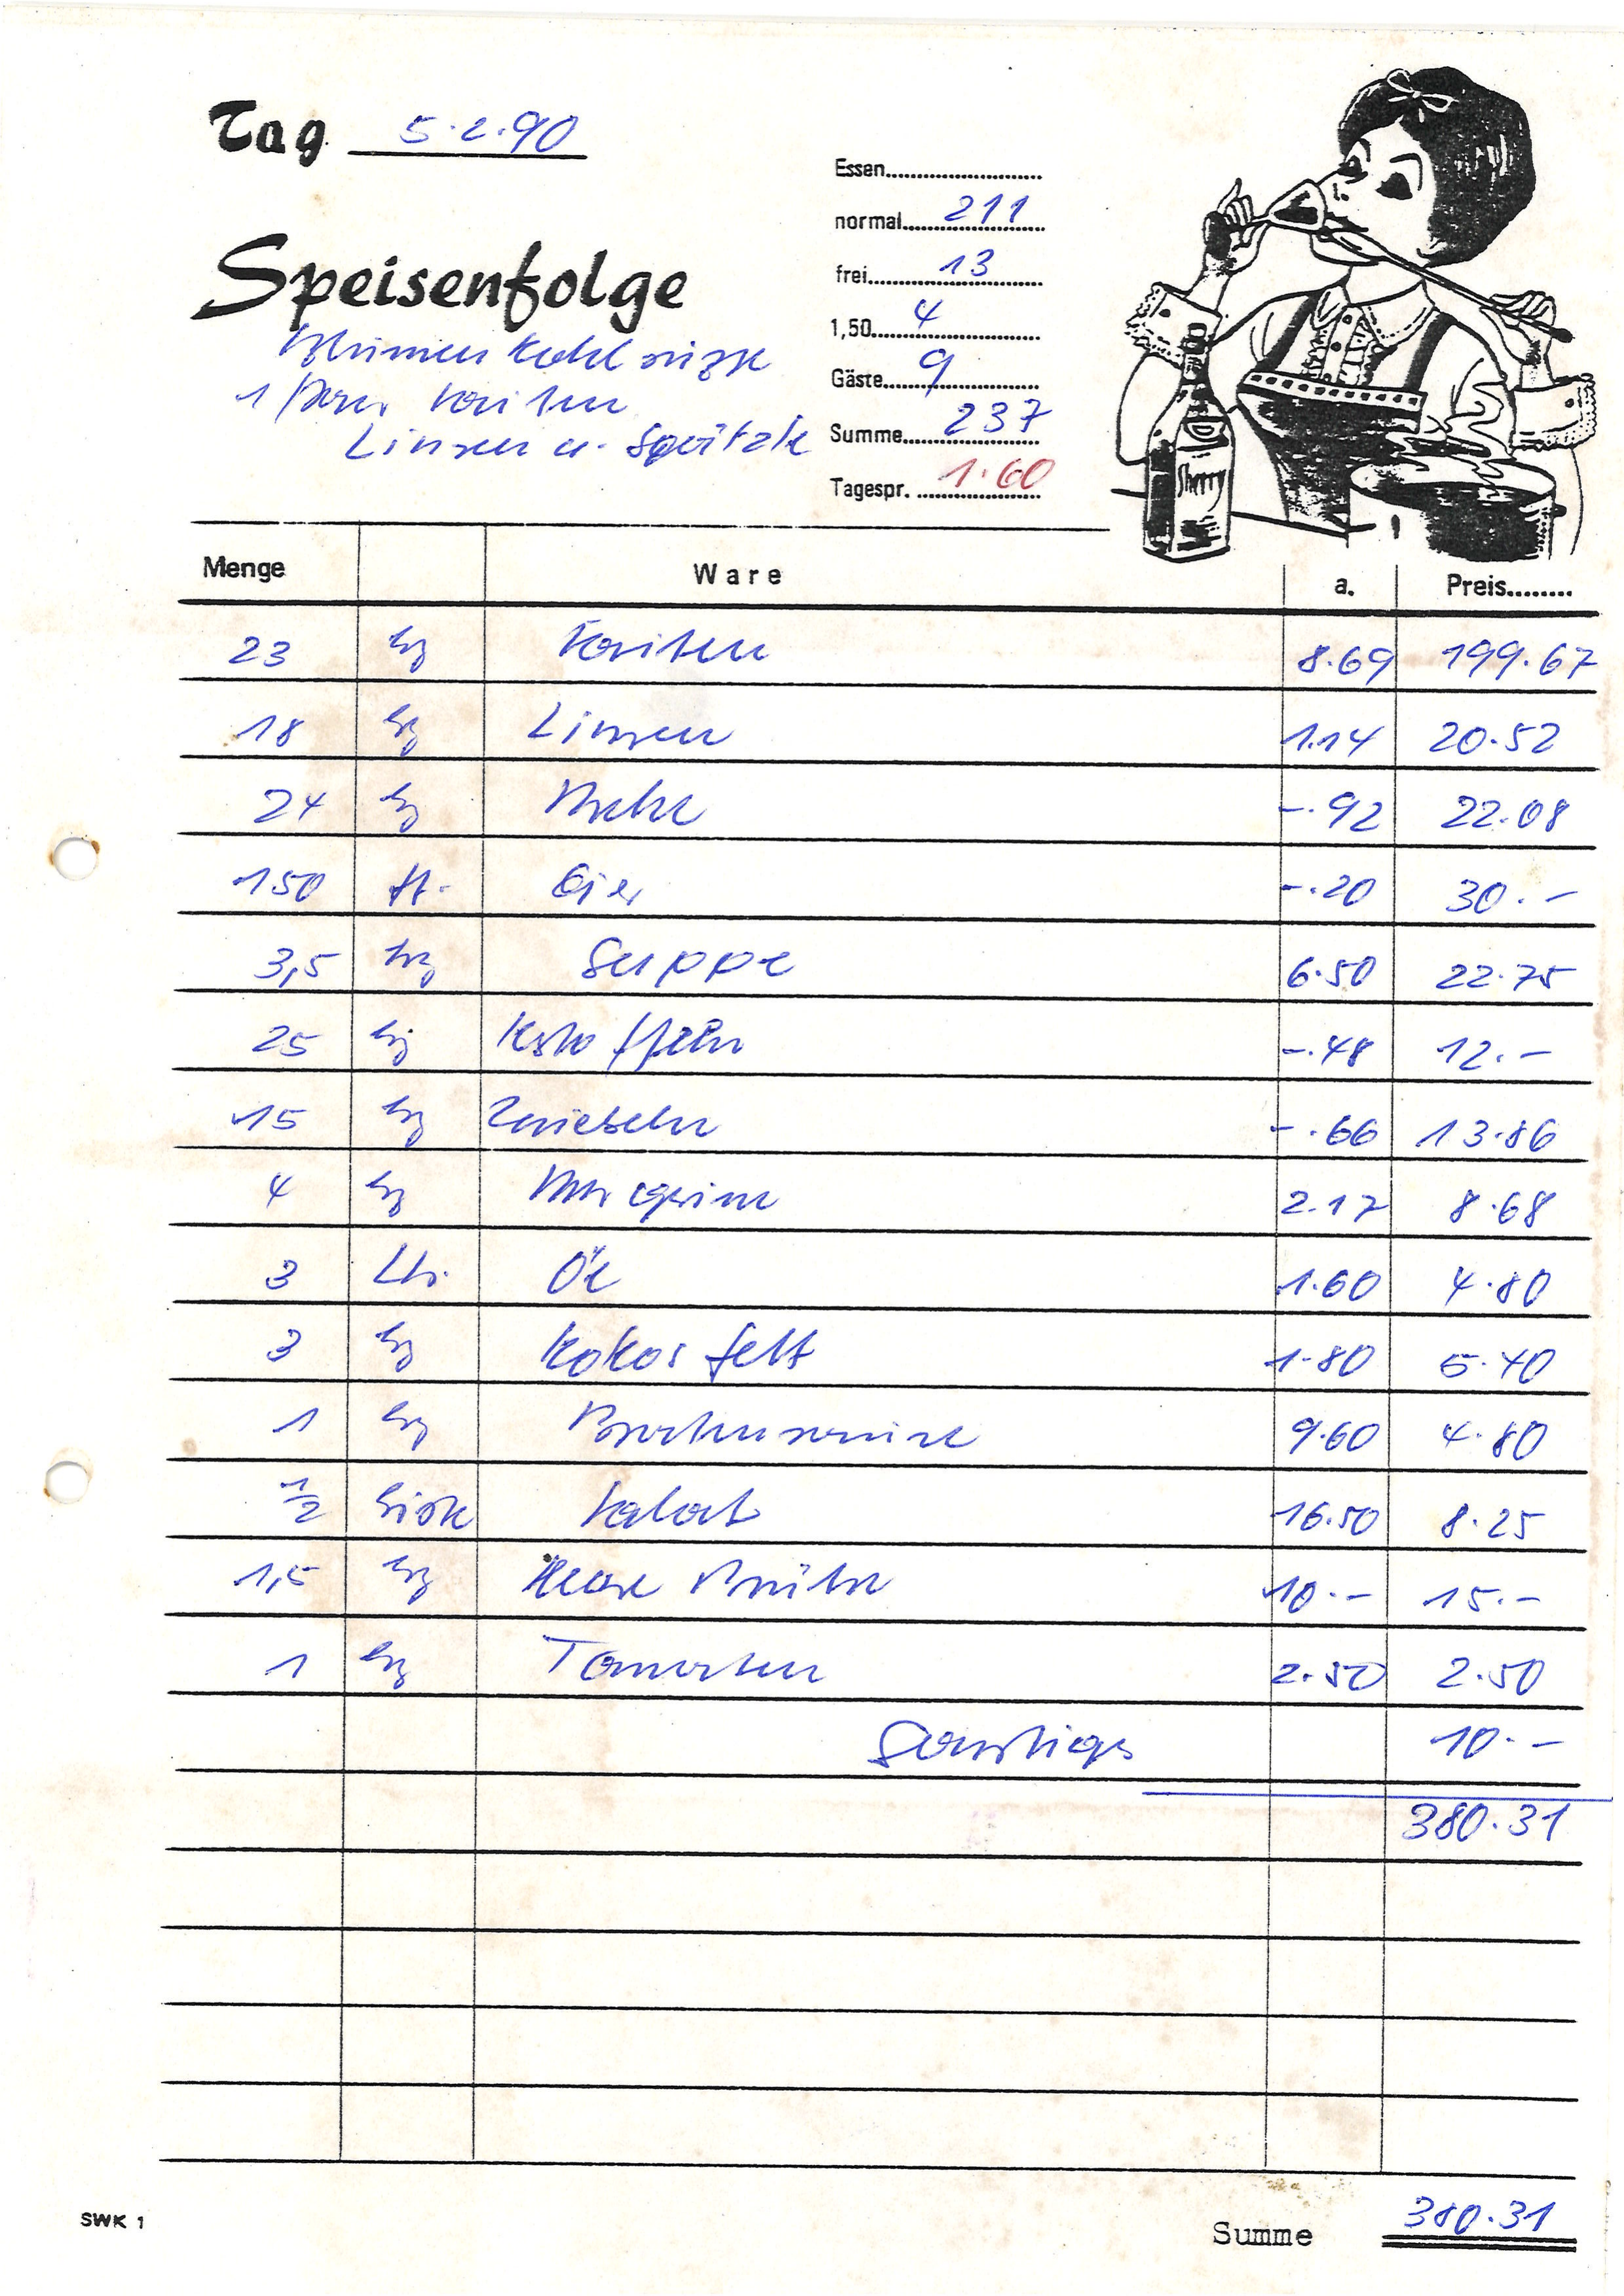 Tag 5.2.90
Speisenfolge
Blumenkohlsuppe
1 Paar Saiten
Linsen u. Spätzle
Essen
normal 211
frei 13
1,50 4
Gäste 9
Summe 237
Tagespr. 1.60
Sherry
Menge Ware a. Preis
23 kg Saiten 8.69 199.67
18 kg Linsen 1.14 20.52
24 kg Mehl -.92 22.08
150 St. Eier -.20 30.-
3,5 kg Suppe 6.50 22.75
25 kg Kartoffeln -.48 12.-
15 kg Zwiebeln -.66 13.86
4 kg Margarine 2.17 8.68
3 Ltr. Öl 1.60 4.80
3 kg Kokosfett 1.80 5.40
1 kg 9.60 4.80
1/2 Kiste Salat 16.50 8.25
1,5 kg Klare Brühe 10.- 15.-
1 kg Tomaten 2.50 2.50
Sonstiges 10.-
380.31
SWK 1
Summe 380.31